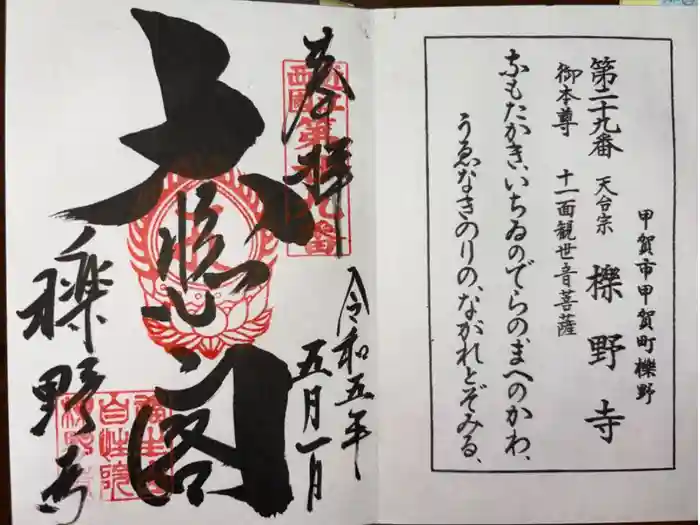 甲賀市甲賀町櫟野
第二十九番 天台宗 櫟野寺
御本尊 十一面観世音菩薩
なもたかき、いちゐのでらのまへのかわ、
うゑなきのりの、ながれとぞみる、
奉拝
令和五年
五月一日
大悲閣
櫟野寺
近江
西国
第廿九番
自性院